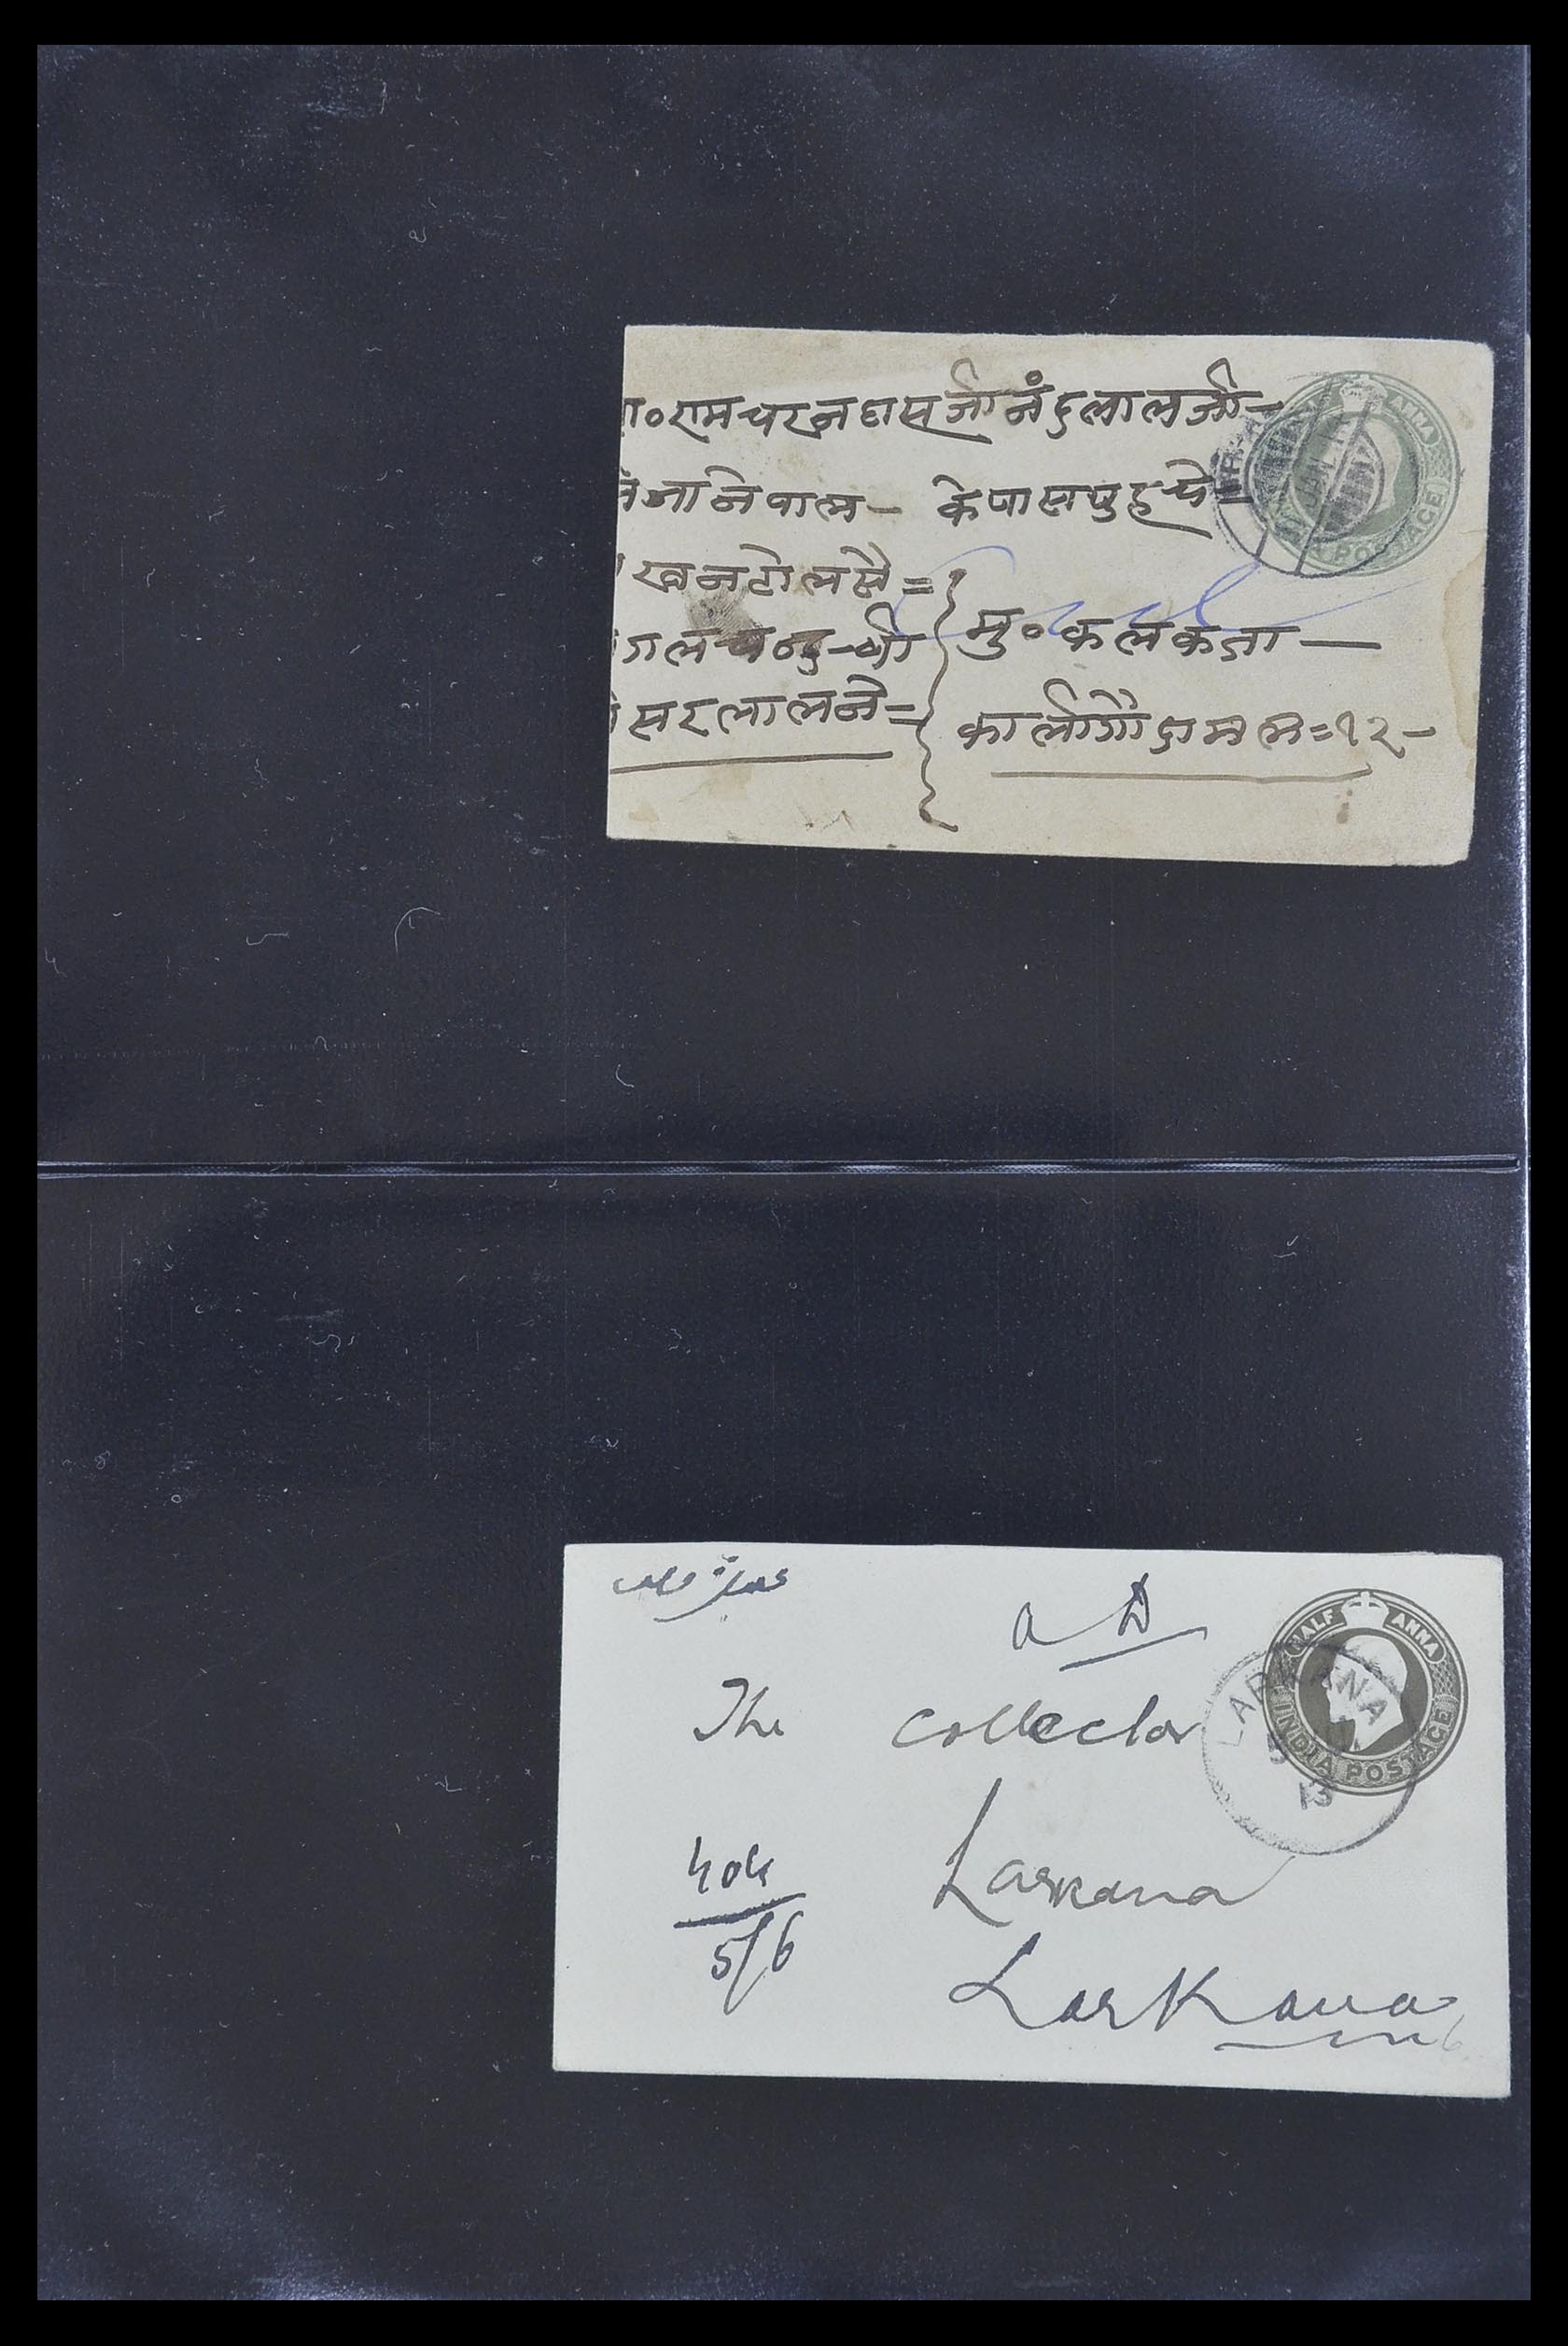 ा०रामचरनदासजी नंदुलालजी-
जानेवाल- के पास पुहचे-
खनटोलसै=
गलचन्दु-
सरलालने=
मु०कलकता—
कालीगौदाम =१२-
ANNA
POSTAGE
JAN
a D
The Collector
Larkana
Larkana
404
5/6
HALF ANNA
INDIA POSTAGE
LARKANA
13